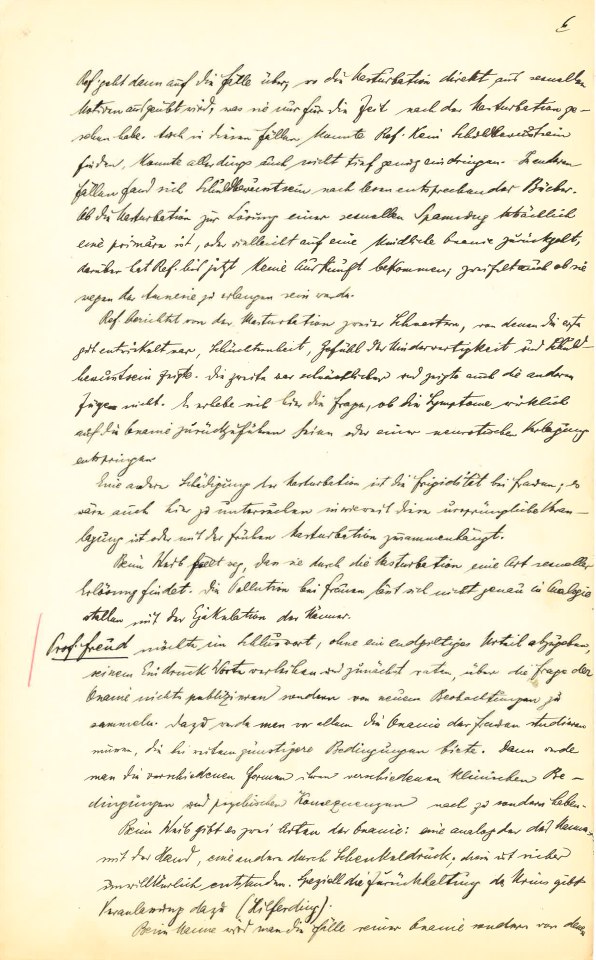 6
Ref. geht dann auf die Fälle über, wo die Masturbation direkt aus sexuellen
Motiven ausgeübt wird, was sie nur für die Zeit nach der Masturbation ge-
sehen habe. Auch in diesen Fällen konnte Ref. kein Schuldbewusstsein
finden, konnte allerdings auch nicht tief genug eindringen. In anderen
Fällen fand sich Schuldbewusstsein nach Lesen entsprechender Bücher.
Ob die Masturbation zur Lösung einer sexuellen Spannung tatsächlich
eine primäre ist, oder vielleicht auf eine kindliche Onanie zurückgeht,
darüber hat Ref. bis jetzt keine Auskunft bekommen; zweifelt auch ob sie
wegen der Amnesie zu erlangen sein werde.
Ref. berichtet von der Masturbation zweier Schwestern, von denen die erste
gut entwickelt war, Schüchternheit, Gefühl der Minderwertigkeit und Schuld-
bewusstsein zeigte. Die zweite war schmächtlicher und zeigte auch die anderen
Züge nicht. Es erhebe sich hier die Frage, ob die Symptome wirklich
auf die Onanie zurückzuführen seien oder einer neurotischen Veranlagung
entspringen
Eine andere Schädigung der Masturbation ist die Frigidität bei Frauen; es
wäre auch hier zu untersuchen inwieweit diese ursprüngliche Veran-
lagung ist oder mit der frühen Masturbation zusammenhängt.
Beim Weib fällt weg, dass sie durch die Masturbation eine Art sexueller
Erlösung findet. Die Pollution bei Frauen lässt sich nicht genau in Analogie
stellen mit der Ejakulation der Männer.
Prof. Freud möchte im Schlusswort, ohne ein endgiltiges Urteil abzugeben,
seinem Eindruck Worte verleihen und zunächst raten, über die Frage der
Onanie nichts zu publiziren sondern von neuem Beobachtungen zu
sammeln. Dazu werde man vor allem die Onanie der Frauen studieren
müssen, die bei weitem günstigere Bedingungen biete. Dann werde
man die verschiedenen Formen ihren verschiedenen klinischen Be-
dingungen und psychischen Konsequenzen nach zu sondern haben.
Beim Weib gibt es zwei Arten der Onanie: eine analog der des Mannes
mit der Hand, eine andere durch Schenkeldruck; diese ist sicher
unwillkürlich entstanden. Speziell die Zurückhaltung des Urins gibt
Veranlassung dazu (Hilferding).
Beim Manne wird man die Fälle reiner Onanie sondern von denen